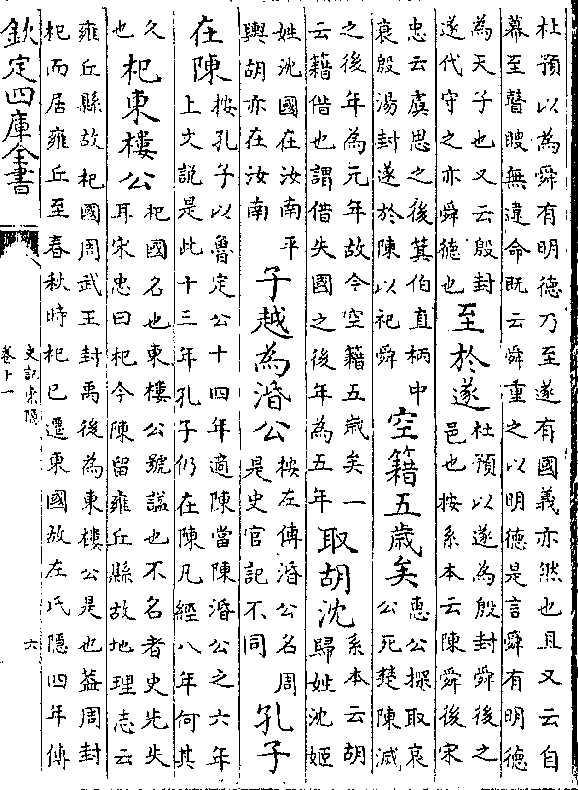 杜預以為舜有明德乃至遂有國義亦然也且又云自
幕至瞽瞍無違命既云舜重之以明德是言舜有明德
為天子也又云殷封
遂代守之亦舜德也
至於遂
杜預以遂為殷封舜後之
邑也按系本云陳舜後宋
忠云虞思之後箕伯直柄中
衰殷湯封遂於陳以祀舜
空籍五歲矣
惠公探取哀
公死楚陳滅
之後年為元年故今空籍五歲矣一
云籍借也謂借失國之後年為五年
取胡沈
系本云胡
歸姓沈姬
姓沈國在汝南平
輿胡亦在汝南
子越為湣公
按左傳湣公名周
是史官記不同
孔子
在陳
按孔子以魯定公十四年適陳當陳湣公之六年
上文說是此十三年孔子仍在陳凡經八年何其
久
也
杞東樓公
杞國名也東樓公號謚也不名者史先失
耳宋忠曰杞今陳留雍丘縣故地理志云
雍丘縣故杞國周武王封禹後為東樓公是也蓋周封
杞而居雍丘至春秋時杞已遷東國故左氏隱四年傳
欽定四庫全書
史記索隱
卷十一
六